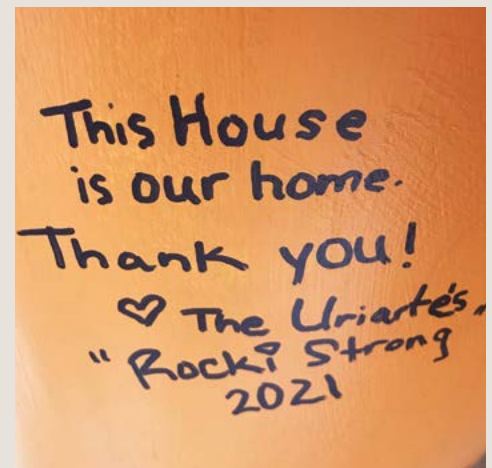 This House
is our home.
Thank you!
♡ The Uriarte's
"Rocki Strong"
2021